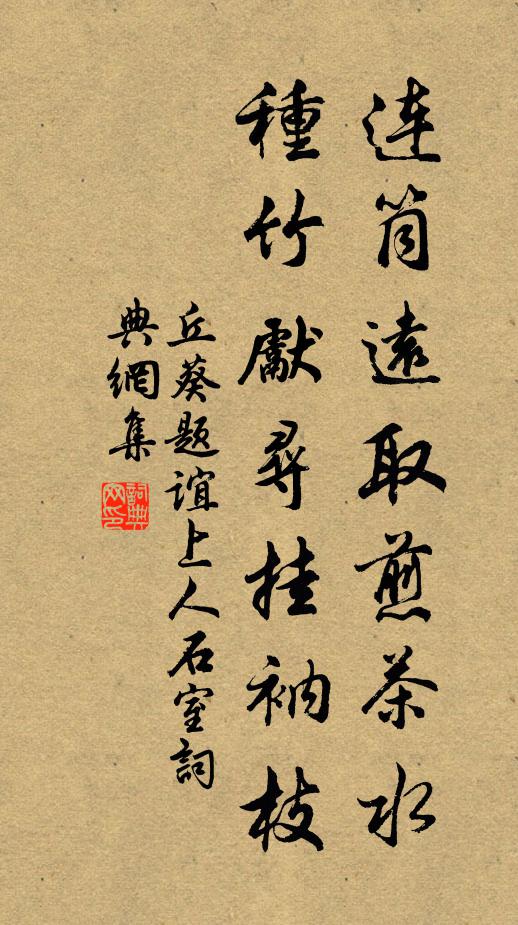 連筒遠取煎茶水
種竹獻尋挂衲枝
丘葵題誼上人石室詞
典網集
詞典網印